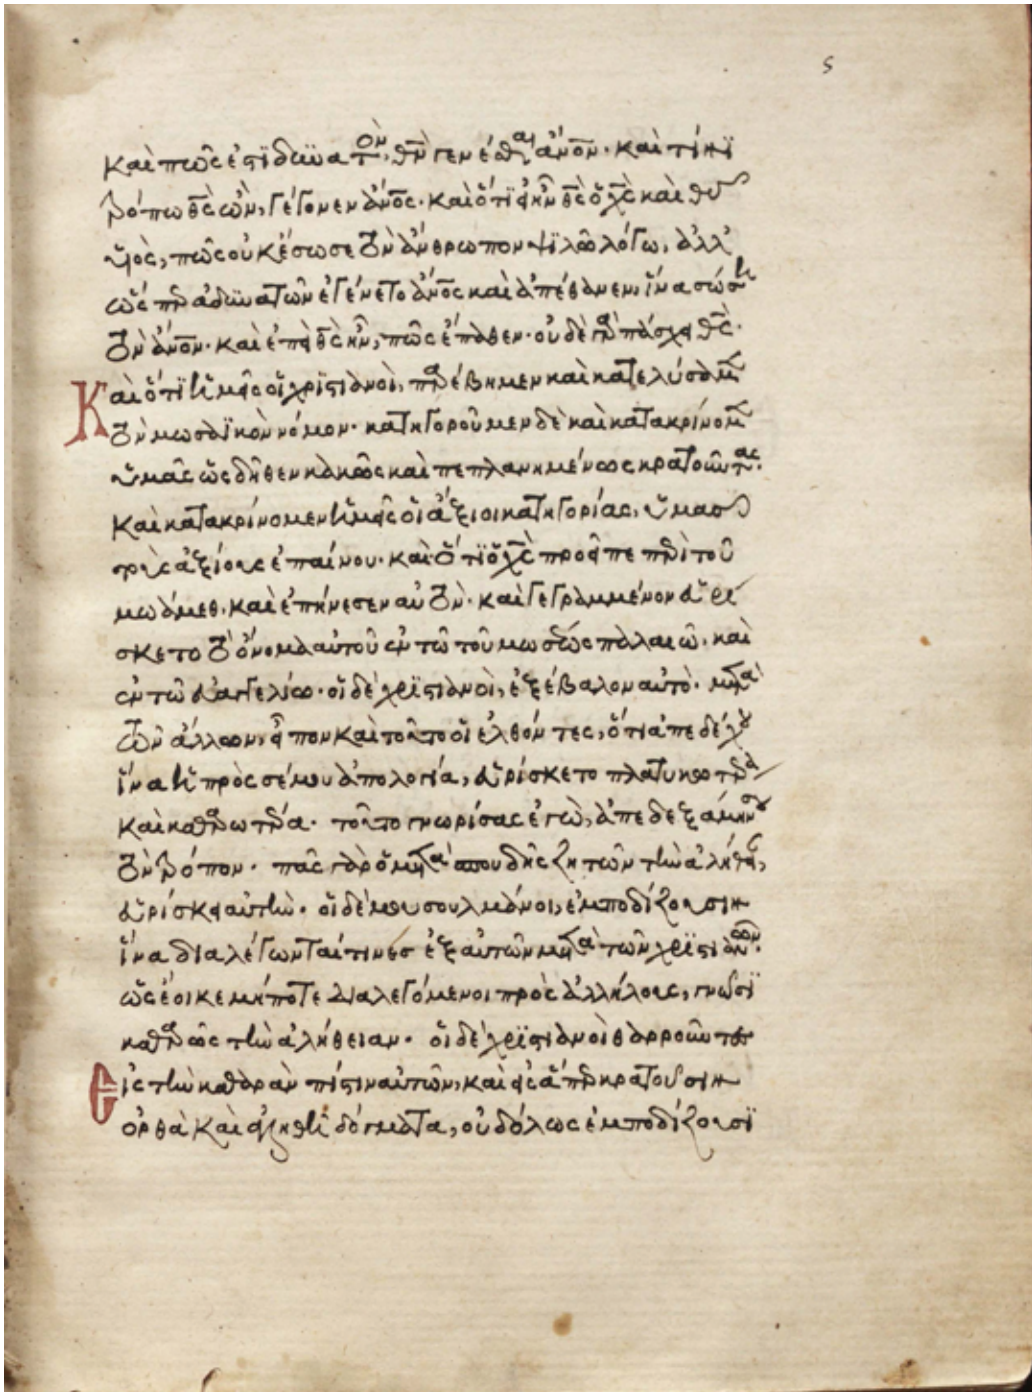 ς
καὶ πῶς ἐστὶ δυνατὸν, θν̅ γενέσθαι ἄνο̅ν· καὶ τίνι
τρόπω θς̅ ὢν, γέγονεν ἄνο̅ς· καὶ ὅτι εἰ ἦν θς̅ ὁ χς̅ καὶ θυ̅
υἱὸς, πῶς οὐκ ἔσωσε τὸν ἄνθρωπον ψιλῶ λόγω, ἀλλ'
ὡς ἀδυνατῶν ἐγένετο ἄνο̅ς καὶ ἀπέθανεν, ἵνα σώση
τὸν ἄνο̅ν· καὶ ἐπεὶ θς̅ ἦν, πῶς ἔπαθεν· οὐδὲ γὰρ πάσχει θς̅·
Καὶ ὅτι ἡμεῖς οἱ χριστιανοὶ, παρέβημεν καὶ κατελύσαμεν
τὸν μωσαϊκὸν νόμον· κατηγοροῦμεν δὲ καὶ κατακρίνομεν
ὑμᾶς ὡς δῆθεν κακῶς καὶ πεπλανημένως κρατοῦντας·
καὶ κατακρίνομεν ἡμεῖς οἱ ἄξιοι κατηγορίας, ὑμᾶς
τοὺς ἀξίους ἐπαίνου· καὶ ὅτι ὁ χς̅ προεῖπε περὶ τοῦ
μωάμεθ· καὶ ἐπήνεσεν αὐτὸν· καὶ γεγραμμένον εὑρί
σκετο τὸ ὄνομα αὐτοῦ ἐν τῶ τοῦ μωσέως παλαιῶ· καὶ
ἐν τῶ εὐαγγελίω· οἱ δὲ χριστιανοὶ, ἐξέβαλον αὐτὸ· μετὰ
τῶν ἄλλων, εἶπον καὶ τοῦτο οἱ ἐλθόντες, ὅτι ἀπεδέχου
ἵνα ἡ πρὸς σέ μου ἀπολογία, εὑρίσκετο πλατυκωτέρα
καὶ καθαρωτέρα· τοῦτο γνωρίσας ἐγὼ, ἀπεδεξάμην σου
τὸν τρόπον· πᾶς γὰρ ὁ μετὰ σπουδῆς ζητῶν τὴν ἀλήθειαν,
εὑρίσκει αὐτὴν· οἱ δὲ μουσουλμάνοι, ἐμποδίζουσιν
ἵνα διαλέγωνταί τινες ἐξ αὐτῶν μετὰ τῶν χριστιανῶν·
ὡς ἔοικε μήποτε διαλεγόμενοι πρὸς ἀλλήλους, γνῶσι
καθαρῶς τὴν ἀλήθειαν· οἱ δὲ χριστιανοὶ θαρροῦντες
Εἰς τὴν καθαρὰν πίστιν αὐτῶν, καὶ εἰς ἅπερ κρατοῦσιν
ὀρθὰ καὶ ἀληθῆ δόγματα, οὐδόλως ἐμποδίζουσι